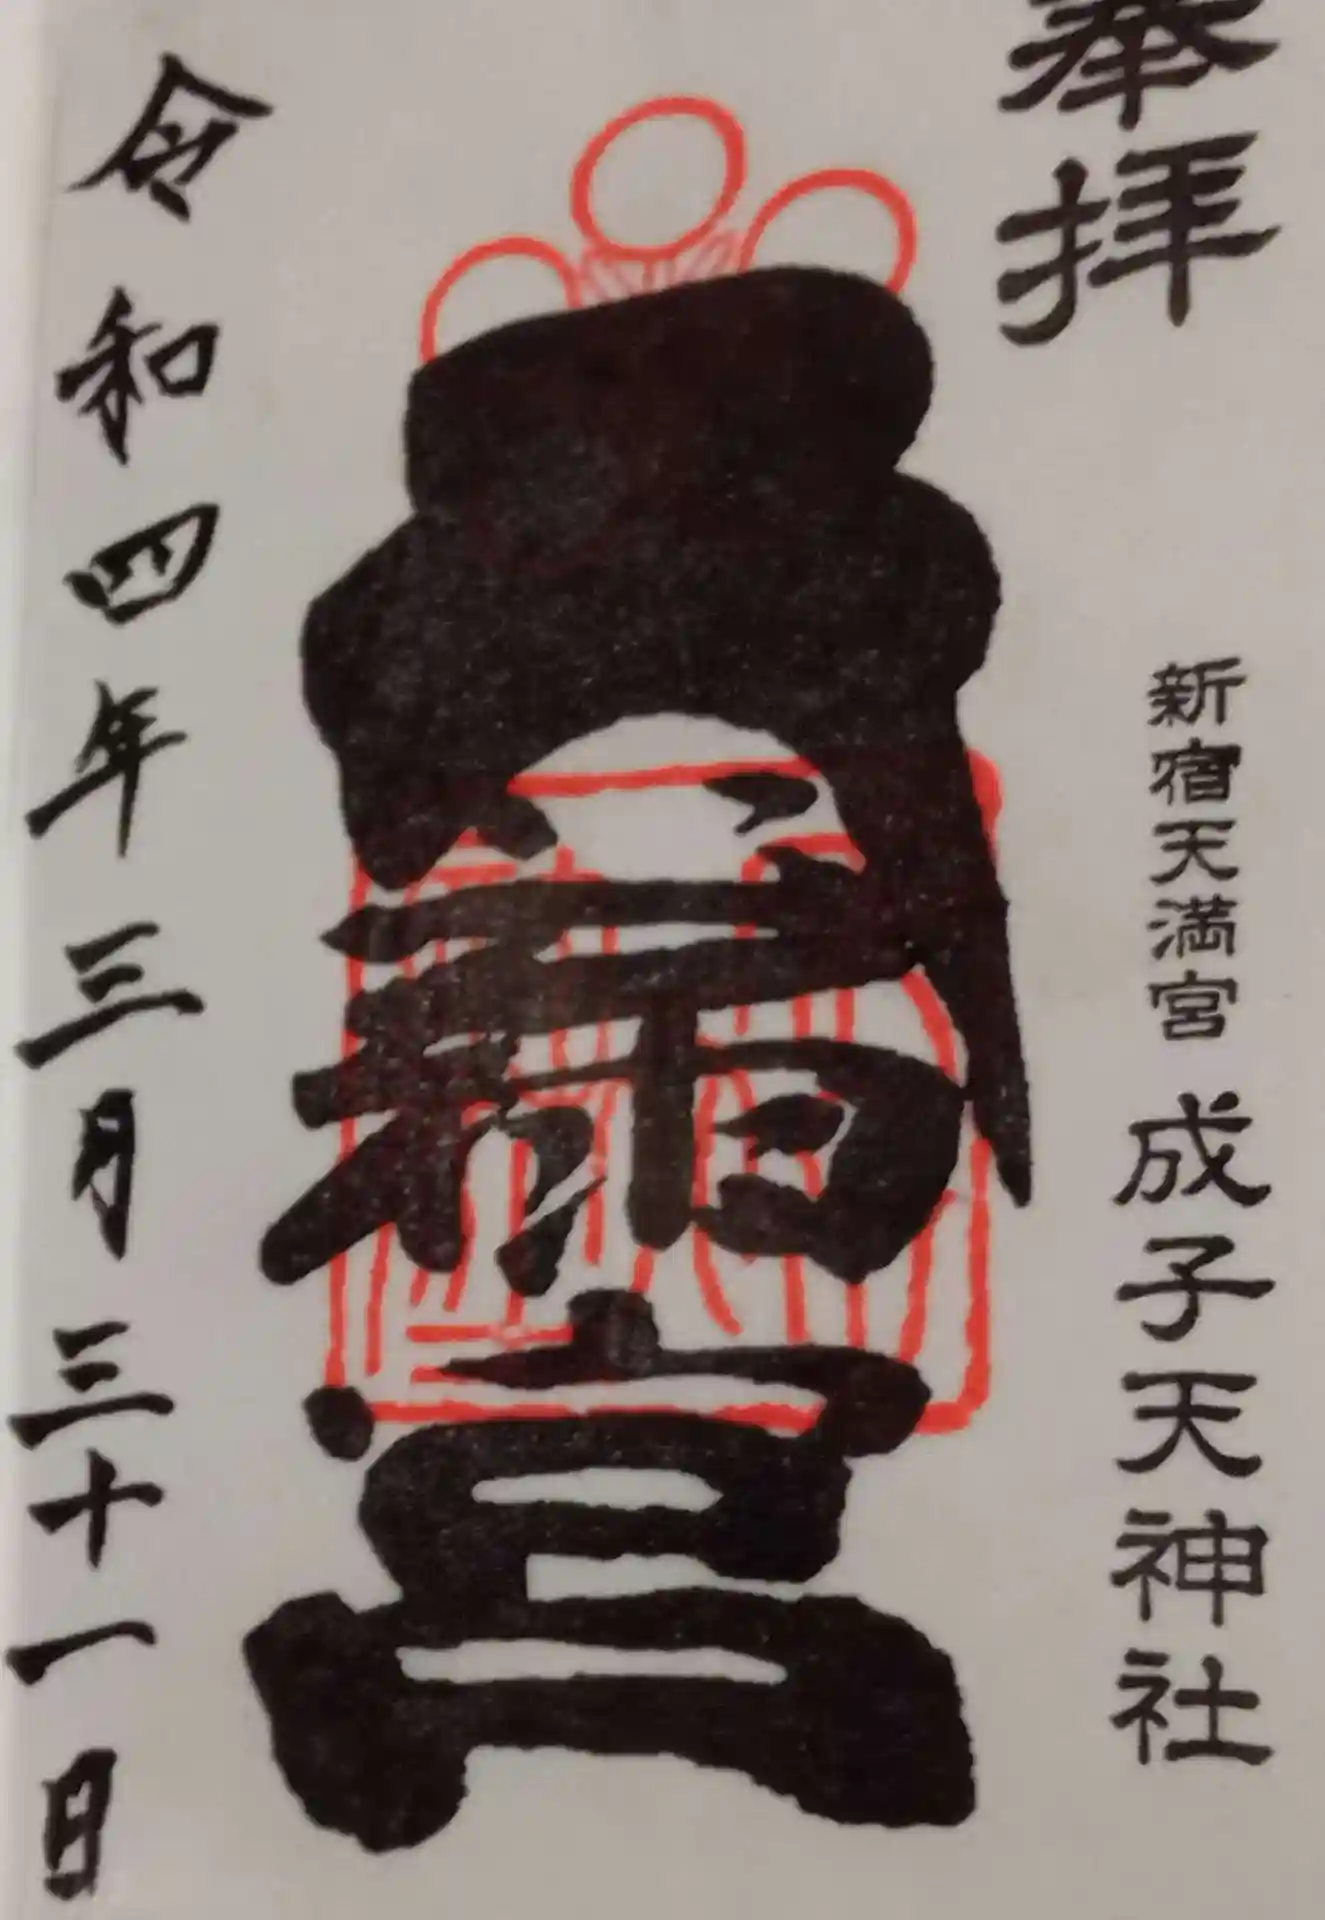 奉拝
新宿天満宮 成子天神社
令和四年三月三十一日